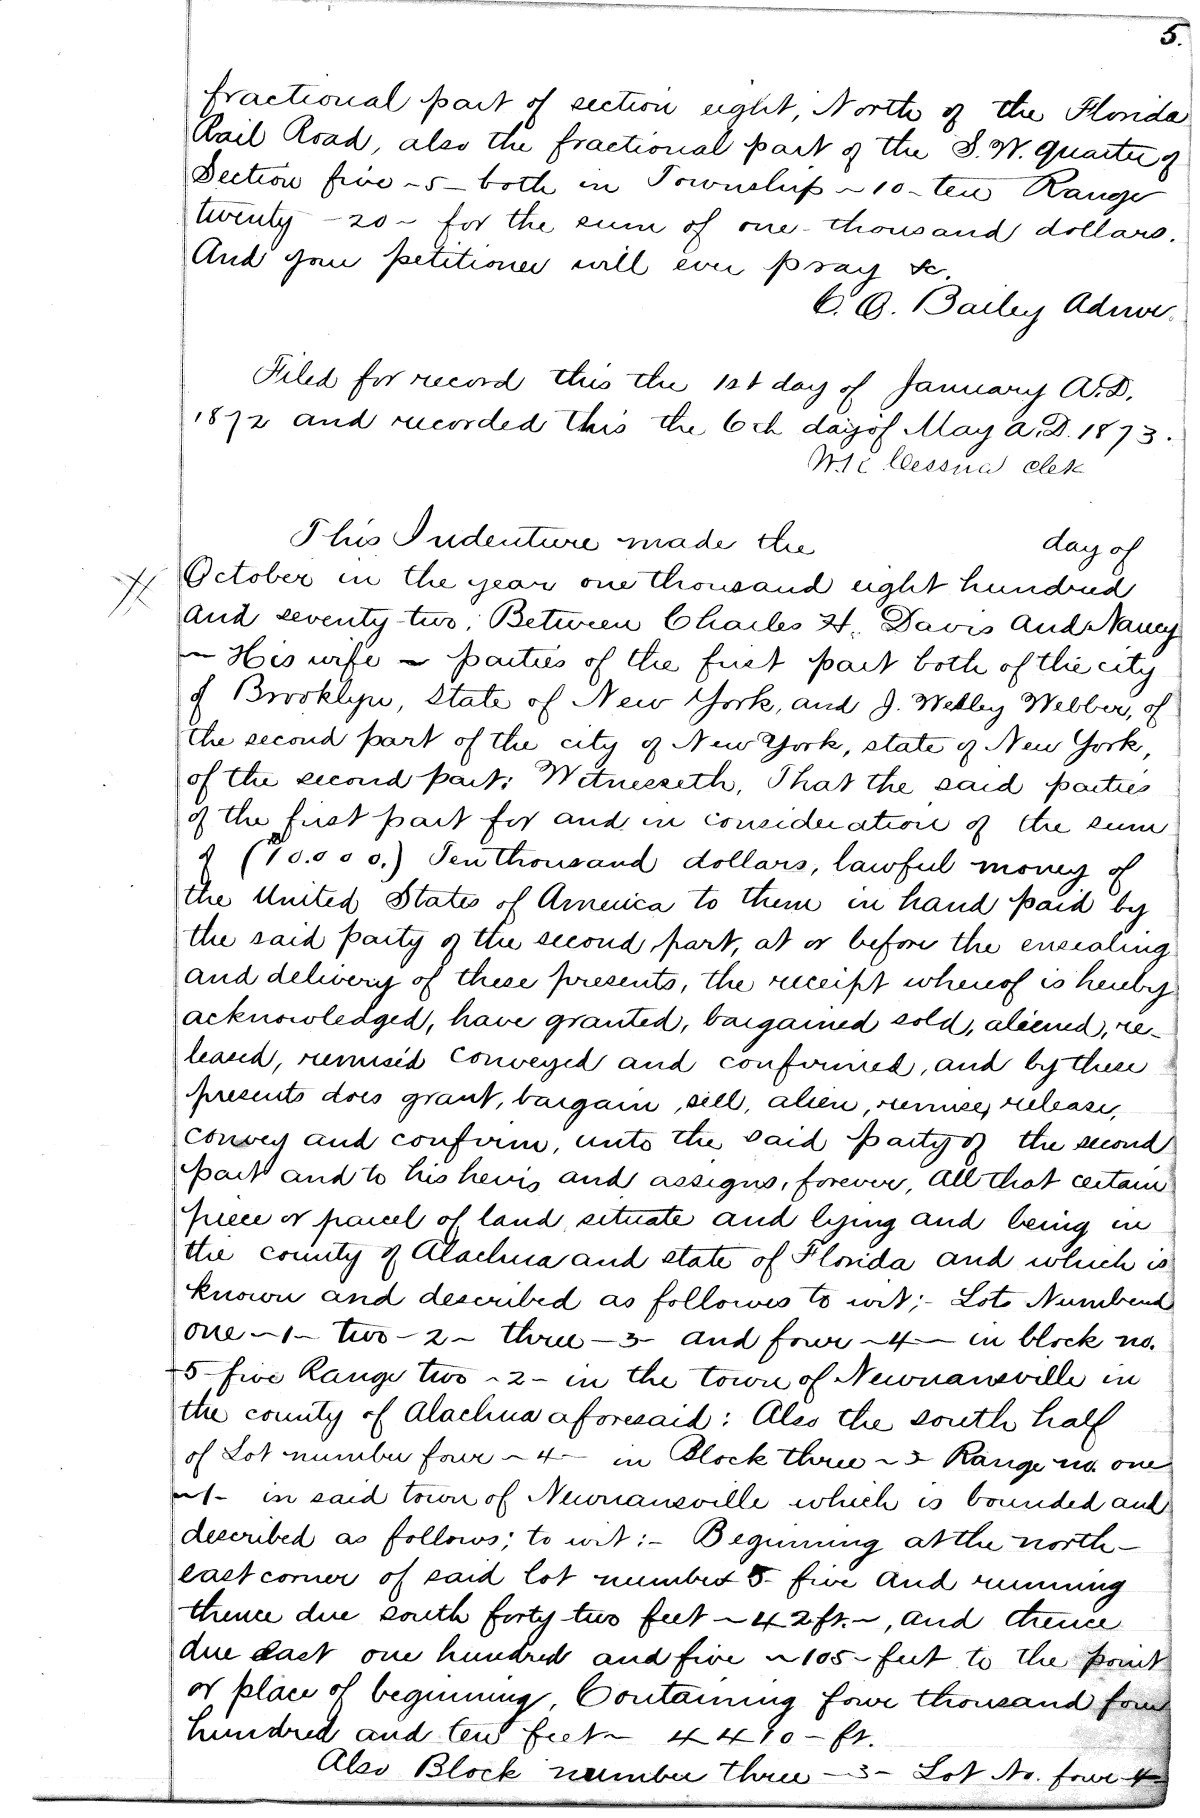 5.
fractional part of section eight, North of the Florida
Rail Road, also the fractional part of the S.W. quarter of
Section five ~5~ both in Township ~10~ ten Range
twenty ~20~ for the sum of one thousand dollars.
And your petitioner will ever pray &c.
C. O. Bailey Admr.
Filed for record this the 1st day of January A.D.
1872 and recorded this the 6th day of May A.D. 1873.
Cessna Clerk
This Indenture made the day of
October in the year one thousand eight hundred
and seventy-two; Between Charles H. Davis and Nancy
~ His wife ~ parties of the first part both of the city
of Brooklyn, State of New York, and J. Wesley Webber, of
the second part of the city of New York, state of New York,
of the second part: Witnesseth, That the said parties
of the first part for and in consideration of the sum
of (10.000.) Ten thousand dollars, lawful money of
the United States of America to them in hand paid by
the said party of the second part, at or before the ensealing
and delivery of these presents, the receipt whereof is hereby
acknowledged, have granted, bargained sold, aliened, re-
leased, remised conveyed and confirmed, and by these
presents does grant, bargain, sell, alien, remise, release,
convey and confirm, unto the said party of the second
part and to his heirs and assigns, forever, All that certain
piece or parcel of land situate and lying and being in
the county of Alachua and state of Florida and which is
known and described as followes to wit;- Lots Numbered
one ~1~ two ~2~ three ~3~ and four ~4~ in block no.
5 five Range two ~2~ in the town of Newnansville in
the county of Alachua aforesaid: Also the south half
of Lot number four ~4~ in Block three ~3~ Range no. one
~1~ in said town of Newnansville which is bounded and
described as follows; to wit:- Beginning at the north-
east corner of said lot number 5 five and running
thence due south forty-two feet ~42 ft.~, and thence
due east one hundred and five ~105~ feet to the point
or place of beginning, Containing four thousand four
hundred and ten feet ~ 4410 ~ ft.
Also Block number three ~3~ Lot No. four 4